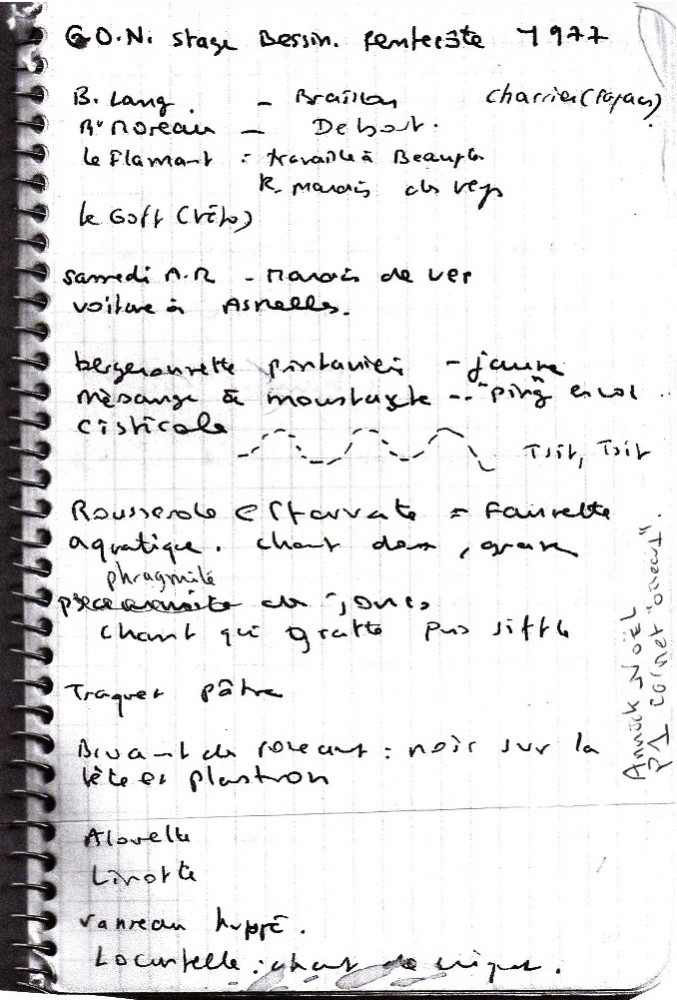 G.O.N. stage Bessin. Pentecôte 1977
B. Lang. - Braillon Charrier (Papa)
Moreau - Debout.
le Flamant : travaille à Beaugle
R. marais des veys
le Goff (véto)
samedi A.M - Marais de Ver
voiture à Asnelles.
bergeronnette printanière - jaune
mésange à moustache -- "ping" envol
cisticole
Tsit, Tsit
Rousserole effarvate = Fauvette
aquatique. chant doux, grave
phragmite
des joncs
chant qui gratte puis siffle
Traquet pâtre
Bruant des roseaux : noir sur la
tête et plastron
Alouette
Linotte
vanneau huppé.
Locustelle : chant de criquet.
Annick NOËL
P1 carnet "oiseaux".